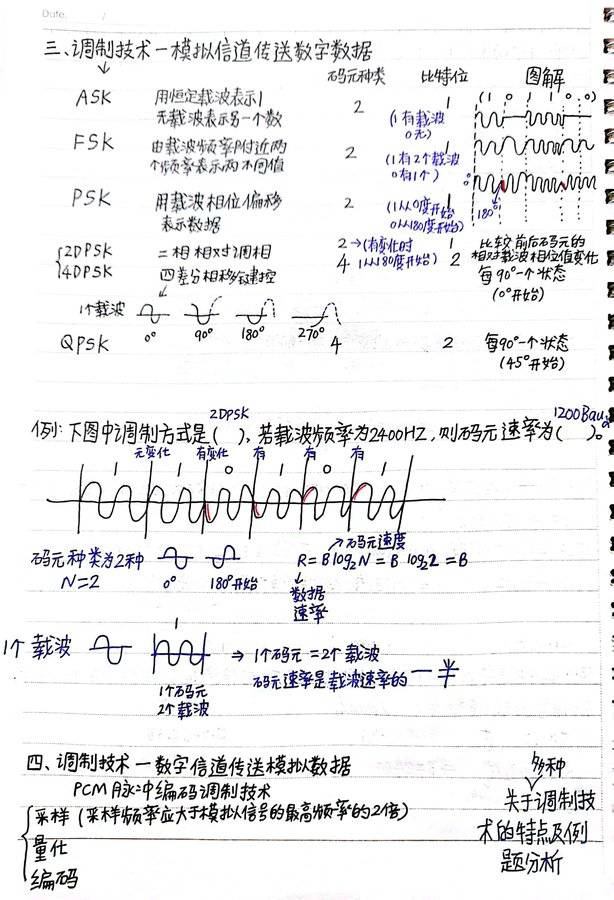 Date. /
三、调制技术—模拟信道传送数字数据
码元种类 比特位 图解
ASK 用恒定载波表示1 2 1 (1 0 1 1 0 0)
无载波表示另一个数 (1有载波
0无)
FSK 由载波频率附近两 2 1
个频率表示两不同值 (1有2个载波
0有1个)
PSK 用载波相位偏移 2 1
表示数据 (1从0度开始
0从180度开始)
180°
2DPSK 二相相对调相 2→(有变化时 1 比较前后码元的
4DPSK 四差分相移键控 4 1从180度开始) 2 相对载波相位值变化
每90°一个状态
(0°开始)
1个载波
0° 90° 180° 270°
QPSK 4 2 每90°一个状态
(45°开始)
2DPSK 1200Baud
例:下图中调制方式是( )。若载波频率为2400HZ,则码元速率为( )。
无变化 有变化 有 有 有
1 1 0 1 0 1
码元种类为2种
N=2
0° 180°开始
码元速度
R=Blog₂N=B log₂2=B
数据
速率
1个载波
1
1个码元
2个载波
→ 1个码元=2个载波
码元速率是载波速率的一半
四、调制技术—数字信道传送模拟数据
PCM脉冲编码调制技术
采样(采样频率应大于模拟信号的最高频率的2倍)
量化
编码
多种
关于调制技
术的特点及例
题分析